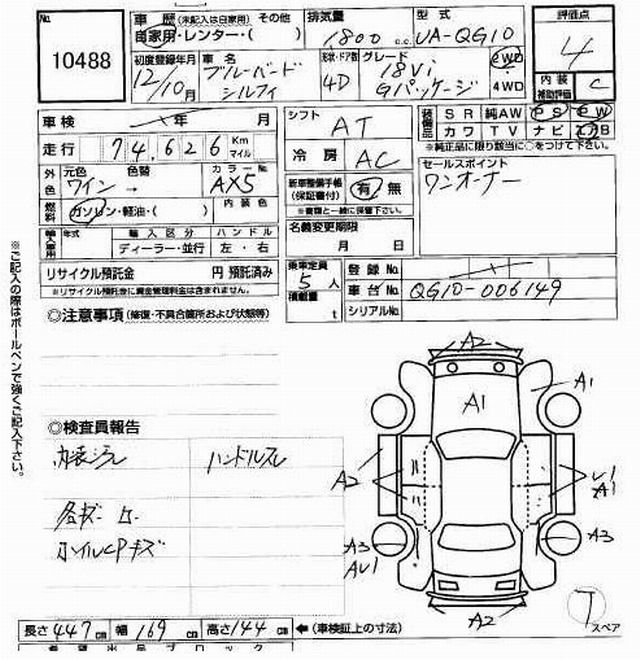 No.
10488
車歴 (未記入は自家用) その他
自家用・レンター・( )
排気量
1,800 c.c.
型式
UA-QG10
評価点
4
内装
補助評価
C
初度登録年月
12/10月
車名
ブルーバード
シルフィ
形状・ドア数
4D
グレード
18Vi
Gパッケージ
2WD
4WD
車検 年 月
走行 74,626 Km マイル
外色
元色 色替
ワイン →
カラーNo.
AX5
燃料
ガソリン・軽油・( )
内装色
輸入車用
年式 輸入区分 ハンドル
ディーラー・並行 左・右
リサイクル預託金 円 預託済み
※リサイクル預託金に資金管理料金は含まれません。
シフト AT
冷房 AC
新車整備手帳
(保証書付)
有 無
※書類と一緒に保管下さい。
名義変更期限
月 日
乗車定員
5人
積載量
t
装備品
SR 純AW PS PW
カワ TV ナビ エアB
※純正品に限り該当に○をつけて下さい。
セールスポイント
ワンオーナー
登録No.
車台No. QG10-006149
シリアルNo.
※ご記入の際はボールペンで強くご記入下さい。
◎注意事項 (修復・不具合箇所および状態等)
◎検査員報告
内装汚レ
ハンドルスレ
ホイルCPキズ
A2
A1
A1
A2
A1
A3
A3
A2
T
スペア
長さ 447cm 幅 169cm 高さ 144cm ←(車検証上の寸法)
希望出品ブロック